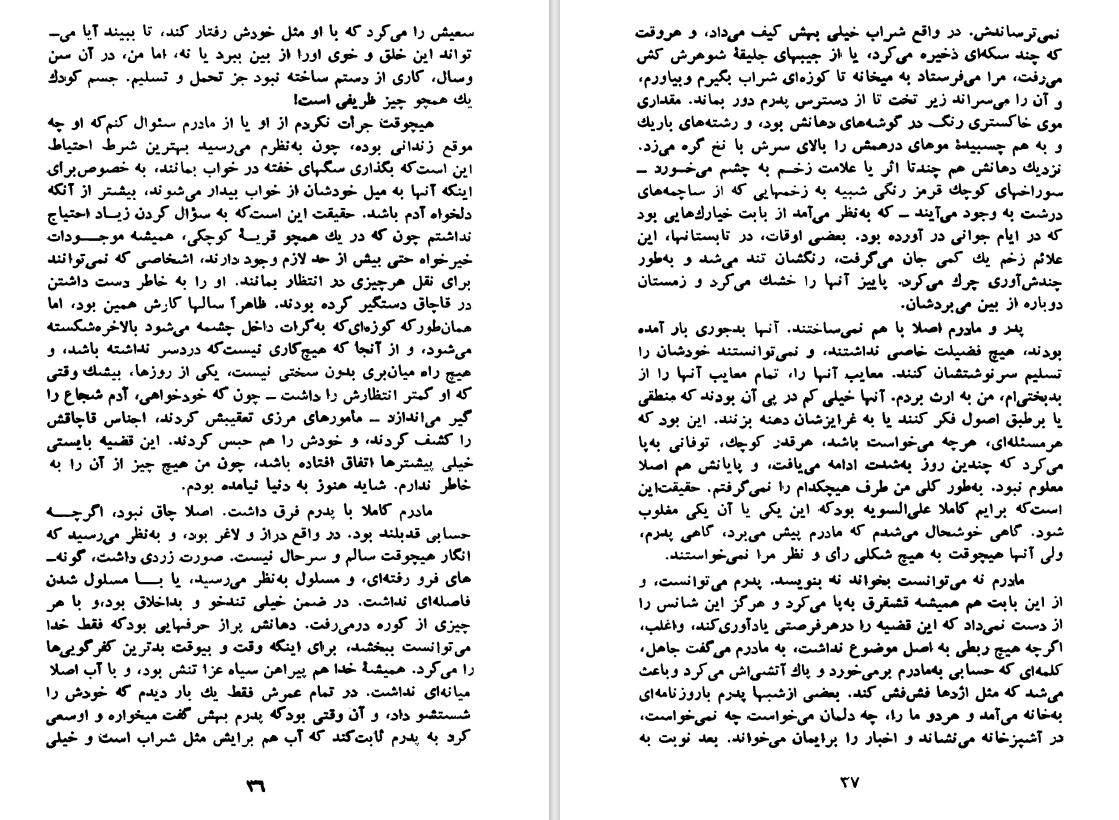 سعیش را می‌کرد که با او مثل خودش رفتار کند، تا ببیند آیا می‌ـ
تواند این خلق و خوی اورا از بین ببرد یا نه، اما من، در آن سن
وسال، کاری از دستم ساخته نبود جز تحمل و تسلیم. جسم کودك
یك همچو چیز ظریفی است!
هیچوقت جرأت نکردم از او یا از مادرم سئوال کنم‌که او چه
موقع زندانی بوده، چون به‌نظرم می‌رسید بهترین شرط احتیاط
این است‌که بگذاری سگهای خفته در خواب بمانند، به خصوص‌برای
اینکه آنها به میل خودشان از خواب بیدار می‌شوند، بیشتر از آنکه
دلخواه آدم باشد. حقیقت این است‌که به سؤال کردن زیـاد احتیاج
نداشتم چون که در یك همچو قریهٔ کوچکی، همیشه موجـــودات
خیرخواه حتی بیش از حد لازم وجود دارند، اشخاصی که نمی‌توانند
برای نقل هرچیزی در انتظار بمانند. او را به خاطر دست داشتن
در قاچاق دستگیر کرده بودند. ظاهراً سالها کارش همین بود، اما
همان‌طورکه کوزه‌ای‌که به‌کرات داخل چشمه می‌شود بالاخره‌شکسته
می‌شود، و از آنجا که هیچ‌کاری نیست‌که دردسر نداشته باشد، و
هیچ راه میان‌بری بدون سختی نیست، یکی از روزها، بیشك وقتی
که او کمتر انتظارش را داشت ـ چون که خودخواهی، آدم شجاع را
گیر می‌اندازد ـ مأمورهای مرزی تعقیبش کردند، اجناس قاچاقش
را کشف کردند، و خودش را هم حبس کردند. این قضیه بایستی
خیلی پیشترها اتفاق افتاده باشد، چون من هیچ چیز از آن را به
خاطر ندارم. شاید هنوز به دنیا نیامده بودم.
مادرم کاملا با پدرم فرق داشت. اصلا چاق نبود، اگرچـــه
حسابی قدبلند بود. در واقع دراز و لاغر بود، و به‌نظر می‌رسید که
انگار هیچوقت سالم و سرحال نیست. صورت زردی داشت، گونه‌ـ
های فرو رفته‌ای، و مسلول به‌نظر می‌رسید، یا بـــا مسلول شدن
فاصله‌ای نداشت. در ضمن خیلی تندخو و بداخلاق بود،و با هر
چیزی از کوره درمی‌رفت. دهانش پراز حرفهایی بودکه فقط خدا
می‌توانست ببخشد، برای اینکه وقت و بیوقت بدترین کفرگویی‌ها
را می‌کرد. همیشهٔ خدا هم پیراهن سیاه عزا تنش بود، و با آب اصلا
میانه‌ای نداشت. در تمام عمرش فقط یك بار دیدم که خودش را
شستشو داد، و آن وقتی بودکه پدرم بهش گفت میخواره و اوسعی
کرد به پدرم ثابت‌کند که آب هم برایش مثل شراب است و خیلی
۳۶
نمی‌ترساندش. در واقع شراب خیلی بهش کیف می‌داد، و هروقت
که چند سکه‌ای ذخیره می‌کرد، یا از جیبهای جلیقهٔ شوهرش کش
می‌رفت، مرا می‌فرستاد به میخانه تا کوزه‌ای شراب بگیرم وبیاورم،
و آن را می‌سراند زیر تخت تا از دسترس پدرم دور بماند. مقداری
موی خاکستری رنگ در گوشه‌های دهانش بود، و رشته‌های باریك
و به هم چسبیدهٔ موهای درهمش را بالای سرش با نخ گره می‌زد.
نزدیك دهانش هم چندتا اثر یا علامت زخـم به چشم می‌خـورد ـ
سوراخهای کوچك قرمز رنگی شبیه به زخمهایی که از ساچمه‌های
درشت به وجود می‌آیند ـ که به‌نظر می‌آمد از بابت خیارك‌هایی بود
که در ایام جوانی در آورده بود. بعضی اوقات، در تابستانها، این
علائم زخم یك کمی جان می‌گرفت، رنگشان تند می‌شد و به‌طور
چندش‌آوری چرك می‌کرد. پاییز آنها را خشك می‌کرد و زمستان
دوباره از بین می‌بردشان.
پدر و مادرم اصلا با هم نمی‌ساختند. آنها بدجوری بار آمده
بودند، هیچ فضیلت خاصی نداشتند، و نمی‌توانستند خودشان را
تسلیم سرنوشتشان کنند. معایب آنها را، تمام معایب آنها را از
بدبختی‌ام، من به ارث بردم. آنها خیلی کم در پی آن بودند که منطقی
یا برطبق اصول فکر کنند یا به غرایزشان دهنه بزنند. این بود که
هرمسئله‌ای، هرچه می‌خواست باشد، هرقدر کوچك، توفانی به‌پا
می‌کرد که چندین روز به‌شدت ادامه می‌یافت، و پایانش هم اصلا
معلوم نبود. به‌طور کلی من طرف هیچکدام را نمی‌گرفتم. حقیقت‌این
است‌که برایم کاملا علی‌السویه بودکه این یکی یا آن یکی مغلوب
شود. گاهی خوشحال می‌شدم که مادرم پیش می‌برد، گاهی پدرم،
ولی آنها هیچوقت به هیچ شکلی رأی و نظر مرا نمی‌خواستند.
مادرم نه می‌توانست بخواند نه بنویسد. پدرم می‌توانست، و
از این بابت هم همیشه قشقرق به‌پا می‌کرد و هرگز این شانس را
از دست نمی‌داد که این قضیه را درهرفرصتی یادآوری‌کند، واغلب،
اگرچه هیچ ربطی به اصل موضوع نداشت، به مادرم می‌گفت جاهل،
کلمه‌ای که حسابی به‌مادرم برمی‌خورد و پاك آتشی‌اش می‌کرد وباعث
می‌شد که مثل اژدها فش‌فش کند. بعضی ازشبها پدرم باروزنامه‌ای
به‌خانه می‌آمد و هردو ما را، چه دلمان می‌خواست چه نمی‌خواست،
در آشپزخانه می‌نشاند و اخبار را برایمان می‌خواند. بعد نوبت به
۳۷